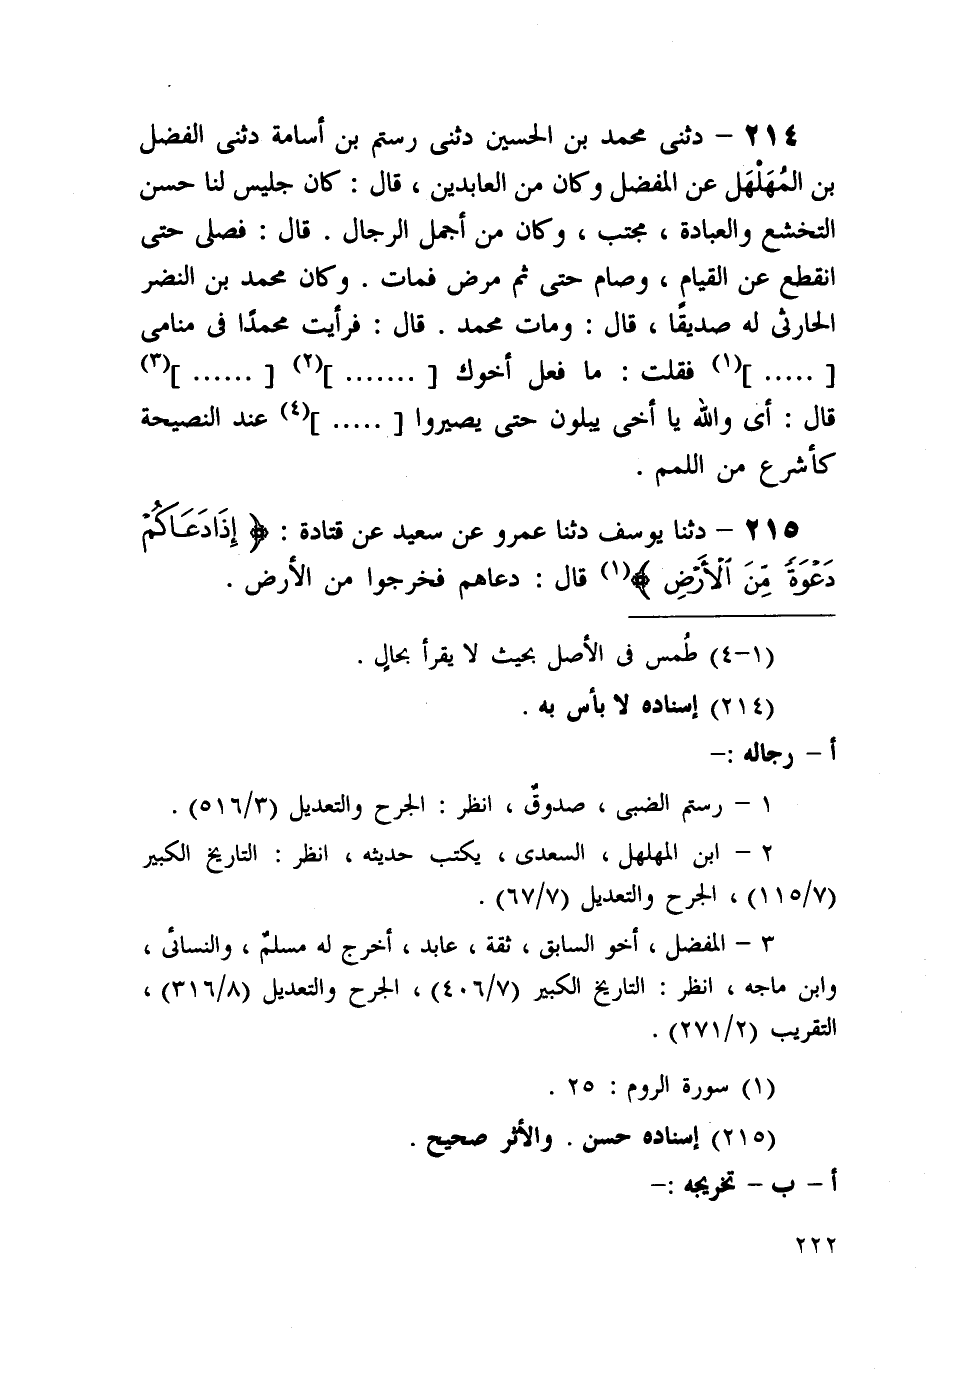 ٢١٤ – دثنى محمد بن الحسين دثنى رستم بن أسامة دثنى الفضل
بن المُهَلْهَل عن المفضل وكان من العابدين ، قال : كان جليس لنا حسن
التخشع والعبادة ، مجتب ، وكان من أجمل الرجال . قال : فصلى حتى
انقطع عن القيام ، وصام حتى ثم مرض فمات . وكان محمد بن النضر
الحارثى له صديقًا ، قال : ومات محمد . قال : فرأيت محمدًا فى منامى
[ ..... ](١) فقلت : ما فعل أخوك [ ....... ](٢) [ ...... ](٣)
قال : أى والله يا أخى يبلون حتى يصيروا [ ..... ](٤) عند النصيحة
كأشرع من اللمم .
٢١٥ – دثنا يوسف دثنا عمرو عن سعيد عن قتادة : ﴿ إِذَا دَعَاكُمْ
دَعْوَةً مِّنَ ٱلْأَرْضِ ﴾(١) قال : دعاهم فخرجوا من الأرض .
(١–٤) طُمس فى الأصل بحيث لا يقرأ بحالٍ .
(٢١٤) إسناده لا بأس به .
أ – رجاله :–
١ – رستم الضبى ، صدوقٌ ، انظر : الجرح والتعديل (٥١٦/٣) .
٢ – ابن المهلهل ، السعدى ، يكتب حديثه ، انظر : التاريخ الكبير
(١١٥/٧) ، الجرح والتعديل (٦٧/٧) .
٣ – المفضل ، أخو السابق ، ثقة ، عابد ، أخرج له مسلمٌ ، والنسائى ،
وابن ماجه ، انظر : التاريخ الكبير (٤٠٦/٧) ، الجرح والتعديل (٣١٦/٨) ،
التقريب (٢٧١/٢) .
(١) سورة الروم : ٢٥ .
(٢١٥) إسناده حسن . والأثر صحيح .
أ – ب – تخريجه :–
٢٢٢